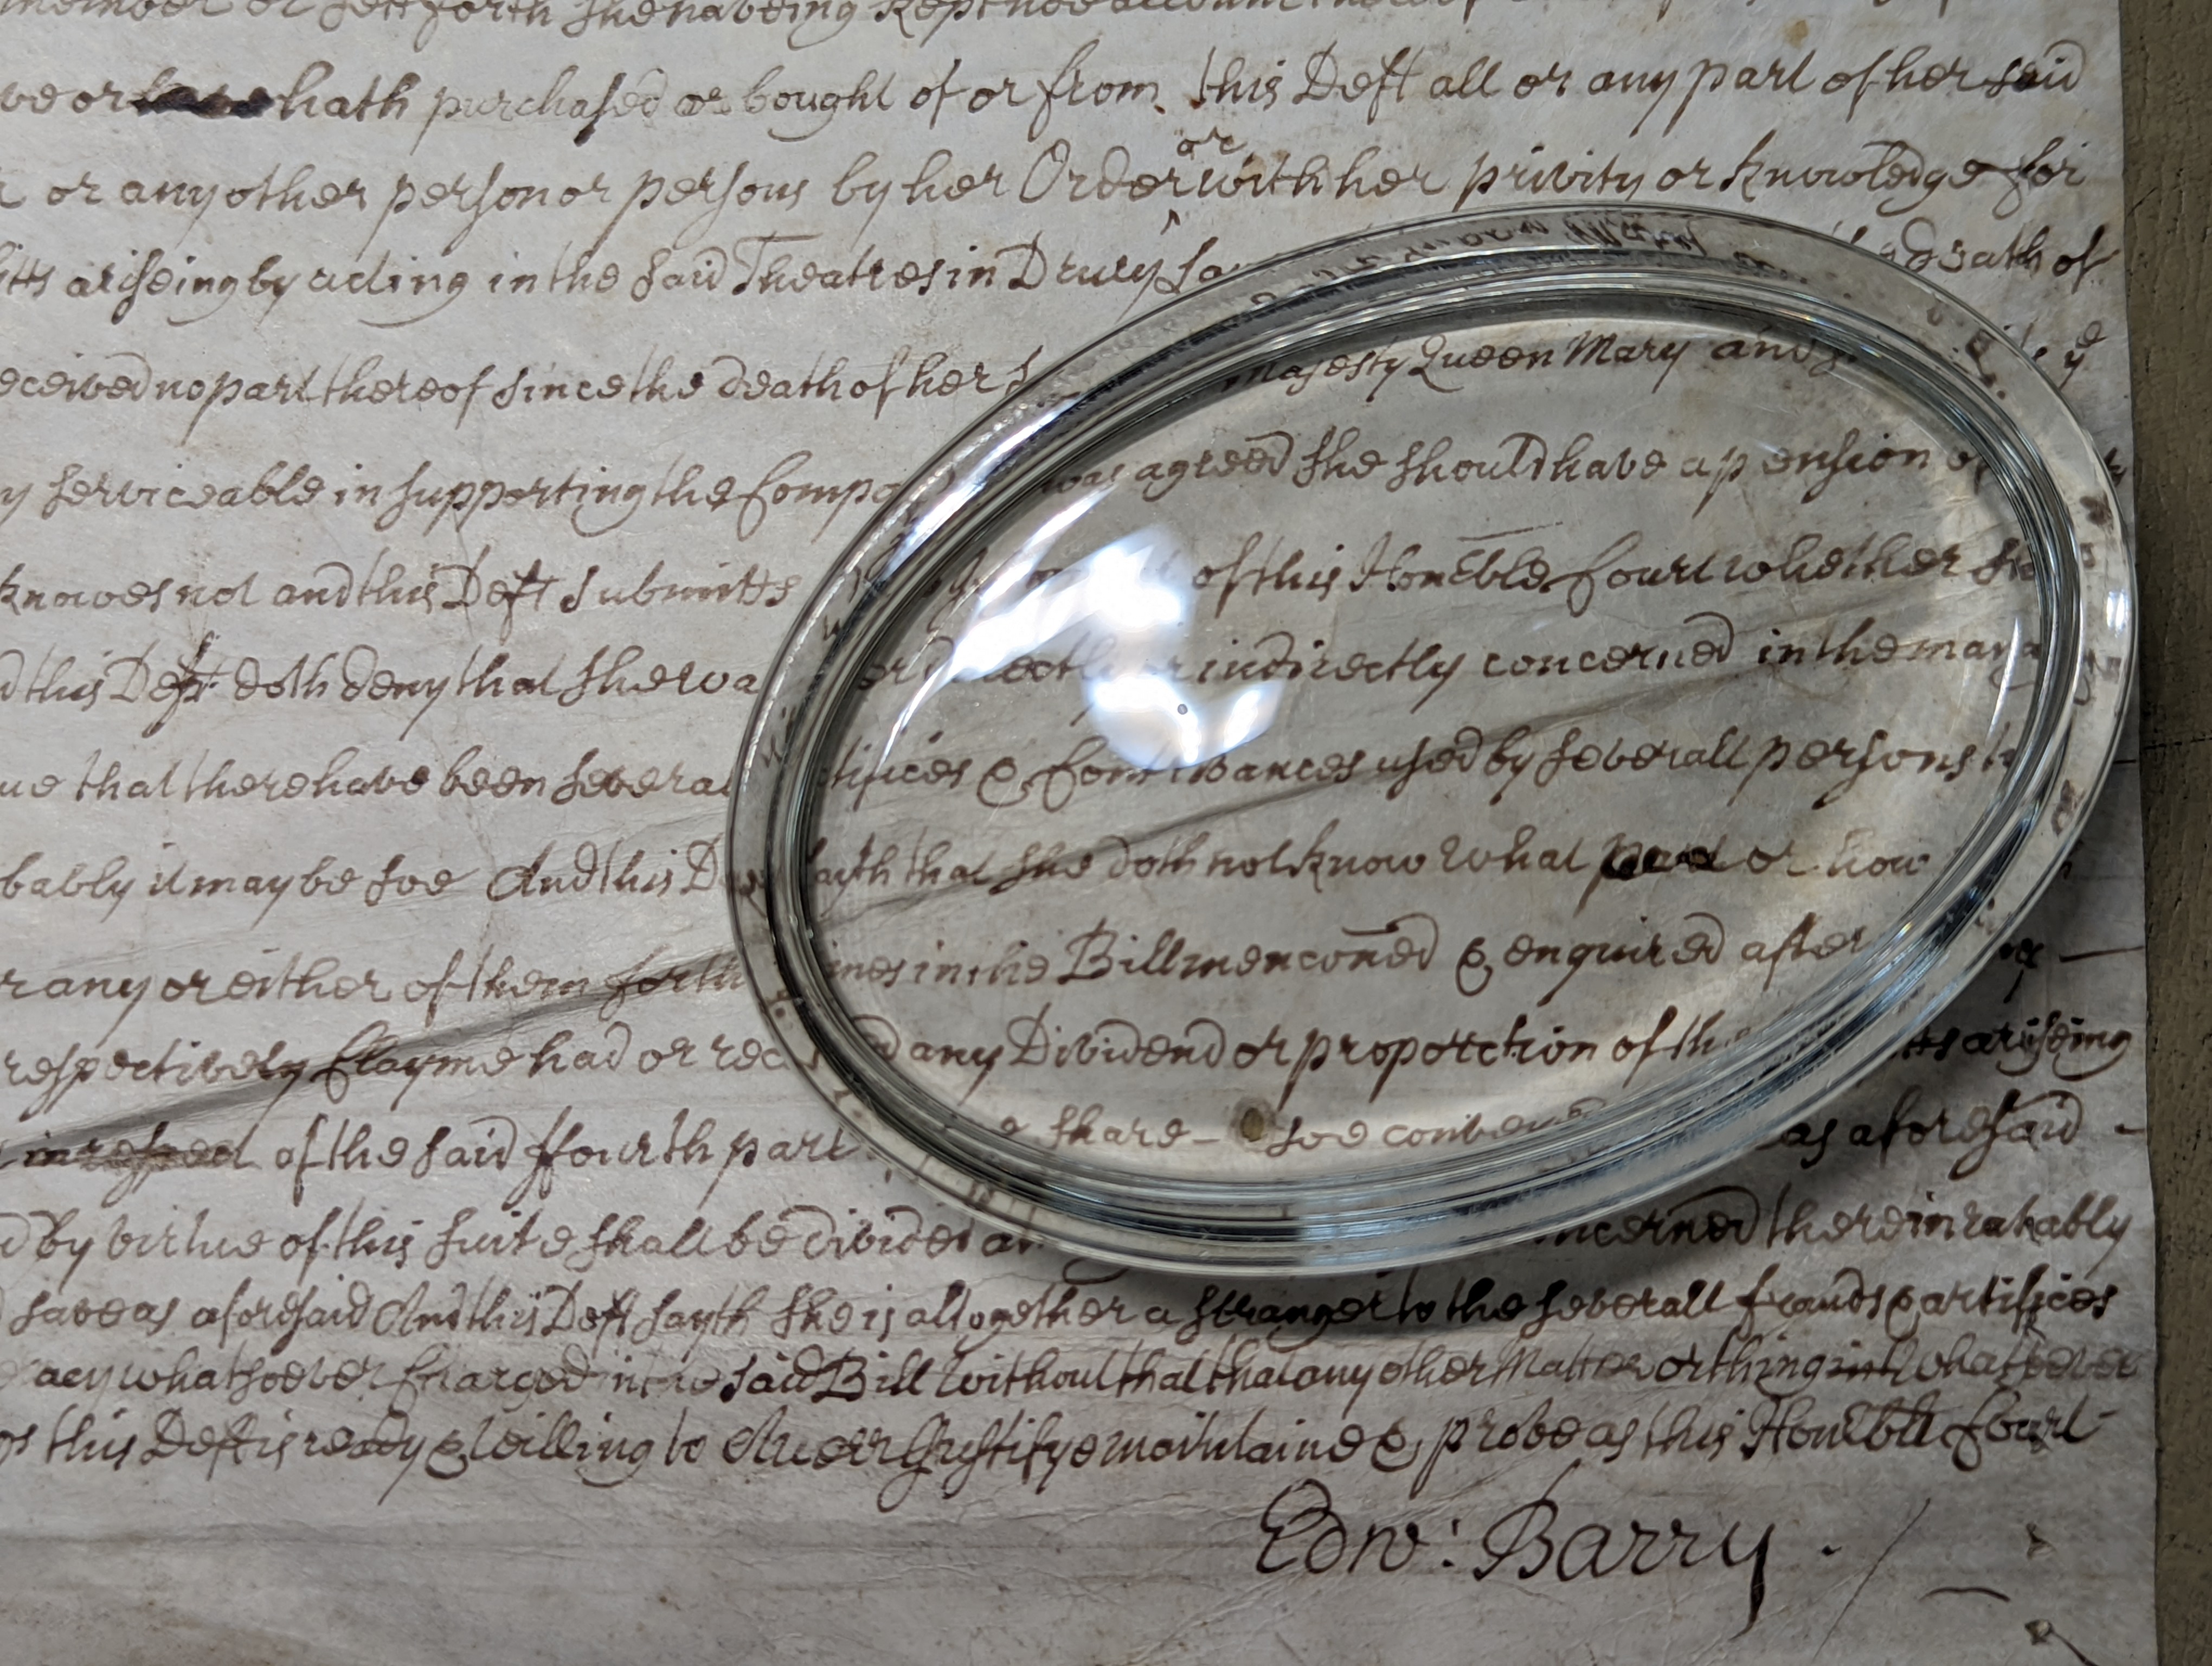 member or sett forth she haveing kept noe account thereof
ve or hath purchased or bought of or from this Deft all or any part of her said
or any other person or persons by her Order or with her privity or knowledge for
itts ariseing by acting in the said Theatres in Drury death of
eceived no part thereof since the death of her Majesty Queen Mary and
y serviceable in supporting the Comp was agreed she should have a pension
knowes not and this Deft submitts of this Honble Court whether she
d this Deft doth deny that she wa directly or indirectly concerned in the mana
ue that there have been severa tifices & Contrivances used by severall persons
bably it may be soe And this D sayth that she doth not know what or how
r any or either of them forth imes in the Bill menconed & enquired after
respectively Clayme had or rec d any Dividend or proporcion of th tts ariseing
in respect of the said ffourth part share soe as aforesaid
d by virtue of this suite shall be divided ncerned therein ratably
save as aforesaid And this Deft sayth she is altogether a stranger to the severall frauds & artifices
acy whatsoever Charged in the said Bill without that that any other Matter or thing whatsoever
this Deft is ready & willing to Averr Justifye maintaine & prove as this Honble Court
Edw: Barry